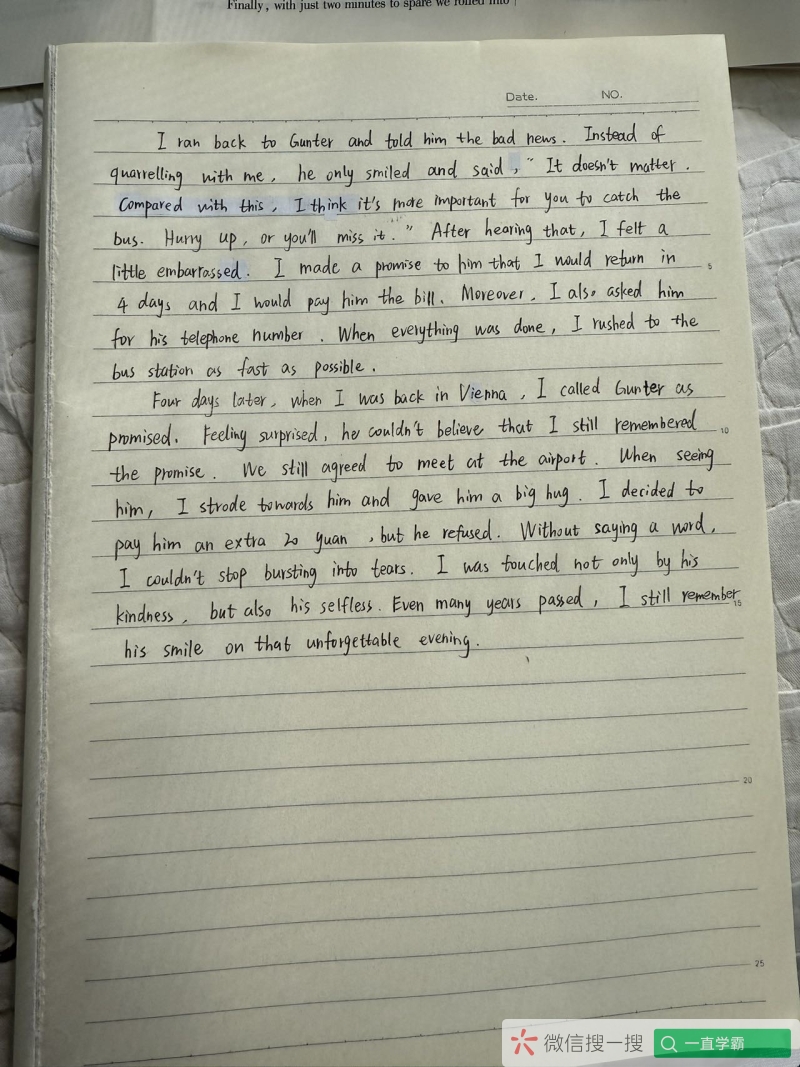 Finally, with just two minutes to spare we rolled into
Date. NO.
I ran back to Gunter and told him the bad news. Instead of
quarrelling with me, he only smiled and said, "It doesn't matter.
Compared with this, I think it's more important for you to catch the
bus. Hurry up, or you'll miss it." After hearing that, I felt a
little embarrassed. I made a promise to him that I would return in
5
4 days and I would pay him the bill. Moreover, I also asked him
for his telephone number. When everything was done, I rushed to the
bus station as fast as possible.
Four days later, when I was back in Vienna, I called Gunter as
promised. Feeling surprised, he couldn't believe that I still remembered
10
the promise. We still agreed to meet at the airport. When seeing
him, I strode towards him and gave him a big hug. I decided to
pay him an extra 20 yuan, but he refused. Without saying a word,
I couldn't stop bursting into tears. I was touched not only by his
kindness, but also his selfless. Even many years passed, I still remember
15
his smile on that unforgettable evening.
20
25
微信搜一搜 一直学霸